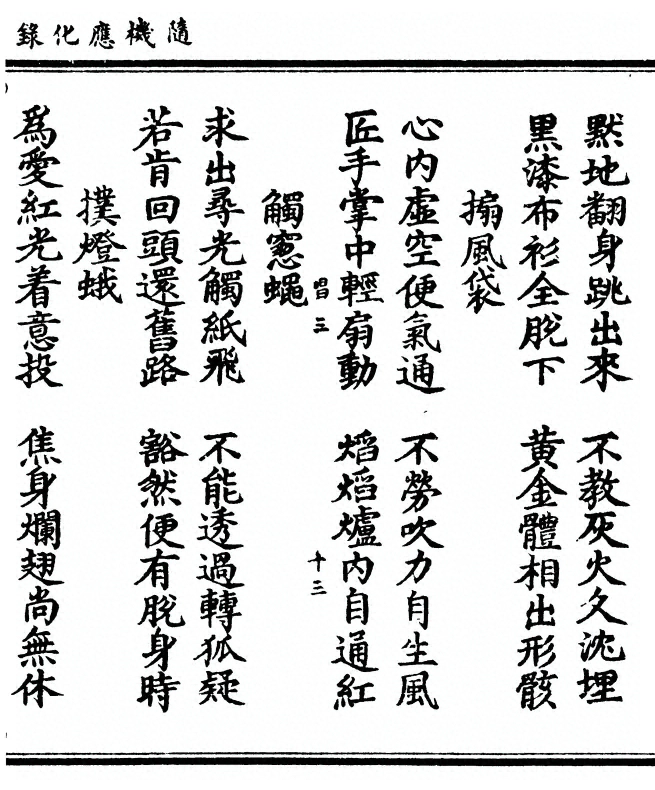 隨機應化錄
默地翻身跳出來 不教灰火久沈埋
黑漆布衫全脫下 黃金體相出形骸
搧風袋
心内虛空便氣通 不勞吹力自生風
匠手掌中輕扇動 熖熖爐内自通紅
唱三 十三
觸窻蠅
求出尋光觸紙飛 不能透過轉狐疑
若肯回頭還舊路 豁然便有脫身時
撲燈蛾
爲愛紅光着意投 焦身爛翅尚無休